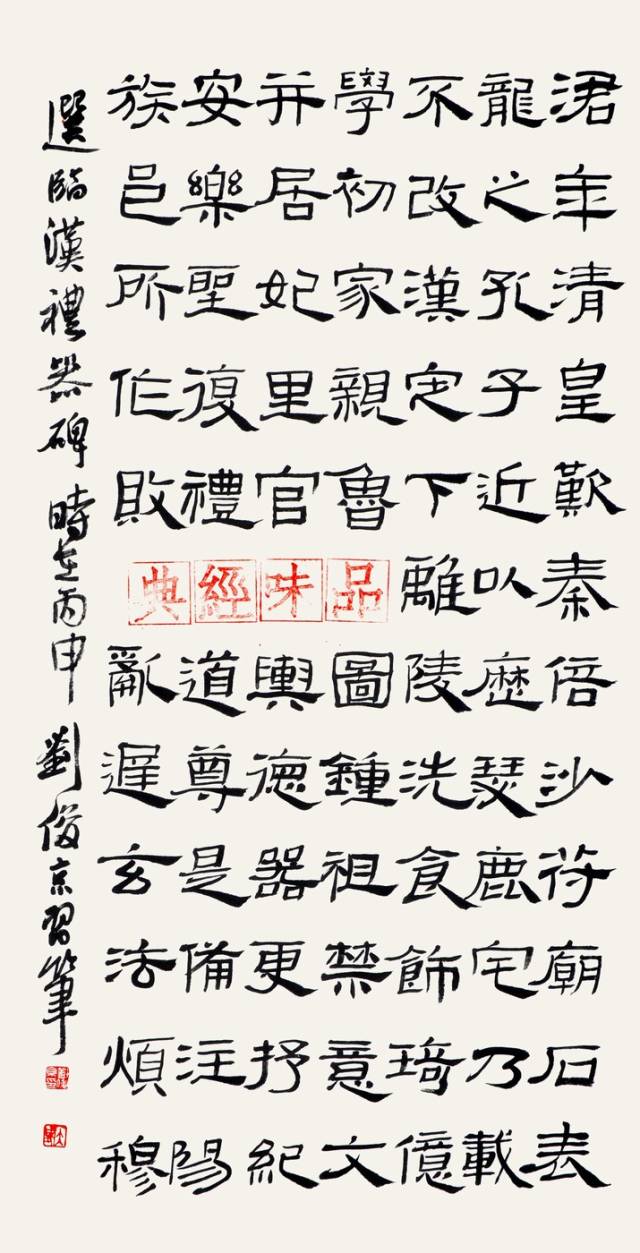 涒年清皇歎秦倍沙符廟石表
龍之孔子近以歷瑟鹿宅乃載
不改漢定下離陵洗食飾琦億
學初家親魯圖鍾祖禁意文
并居妃里官輿德器更抒紀
安樂聖復禮道尊是備注陽
族邑所作敗亂遲玄法煩穆
選臨漢禮器碑 時在丙申 劉俊京習筆
品味經典